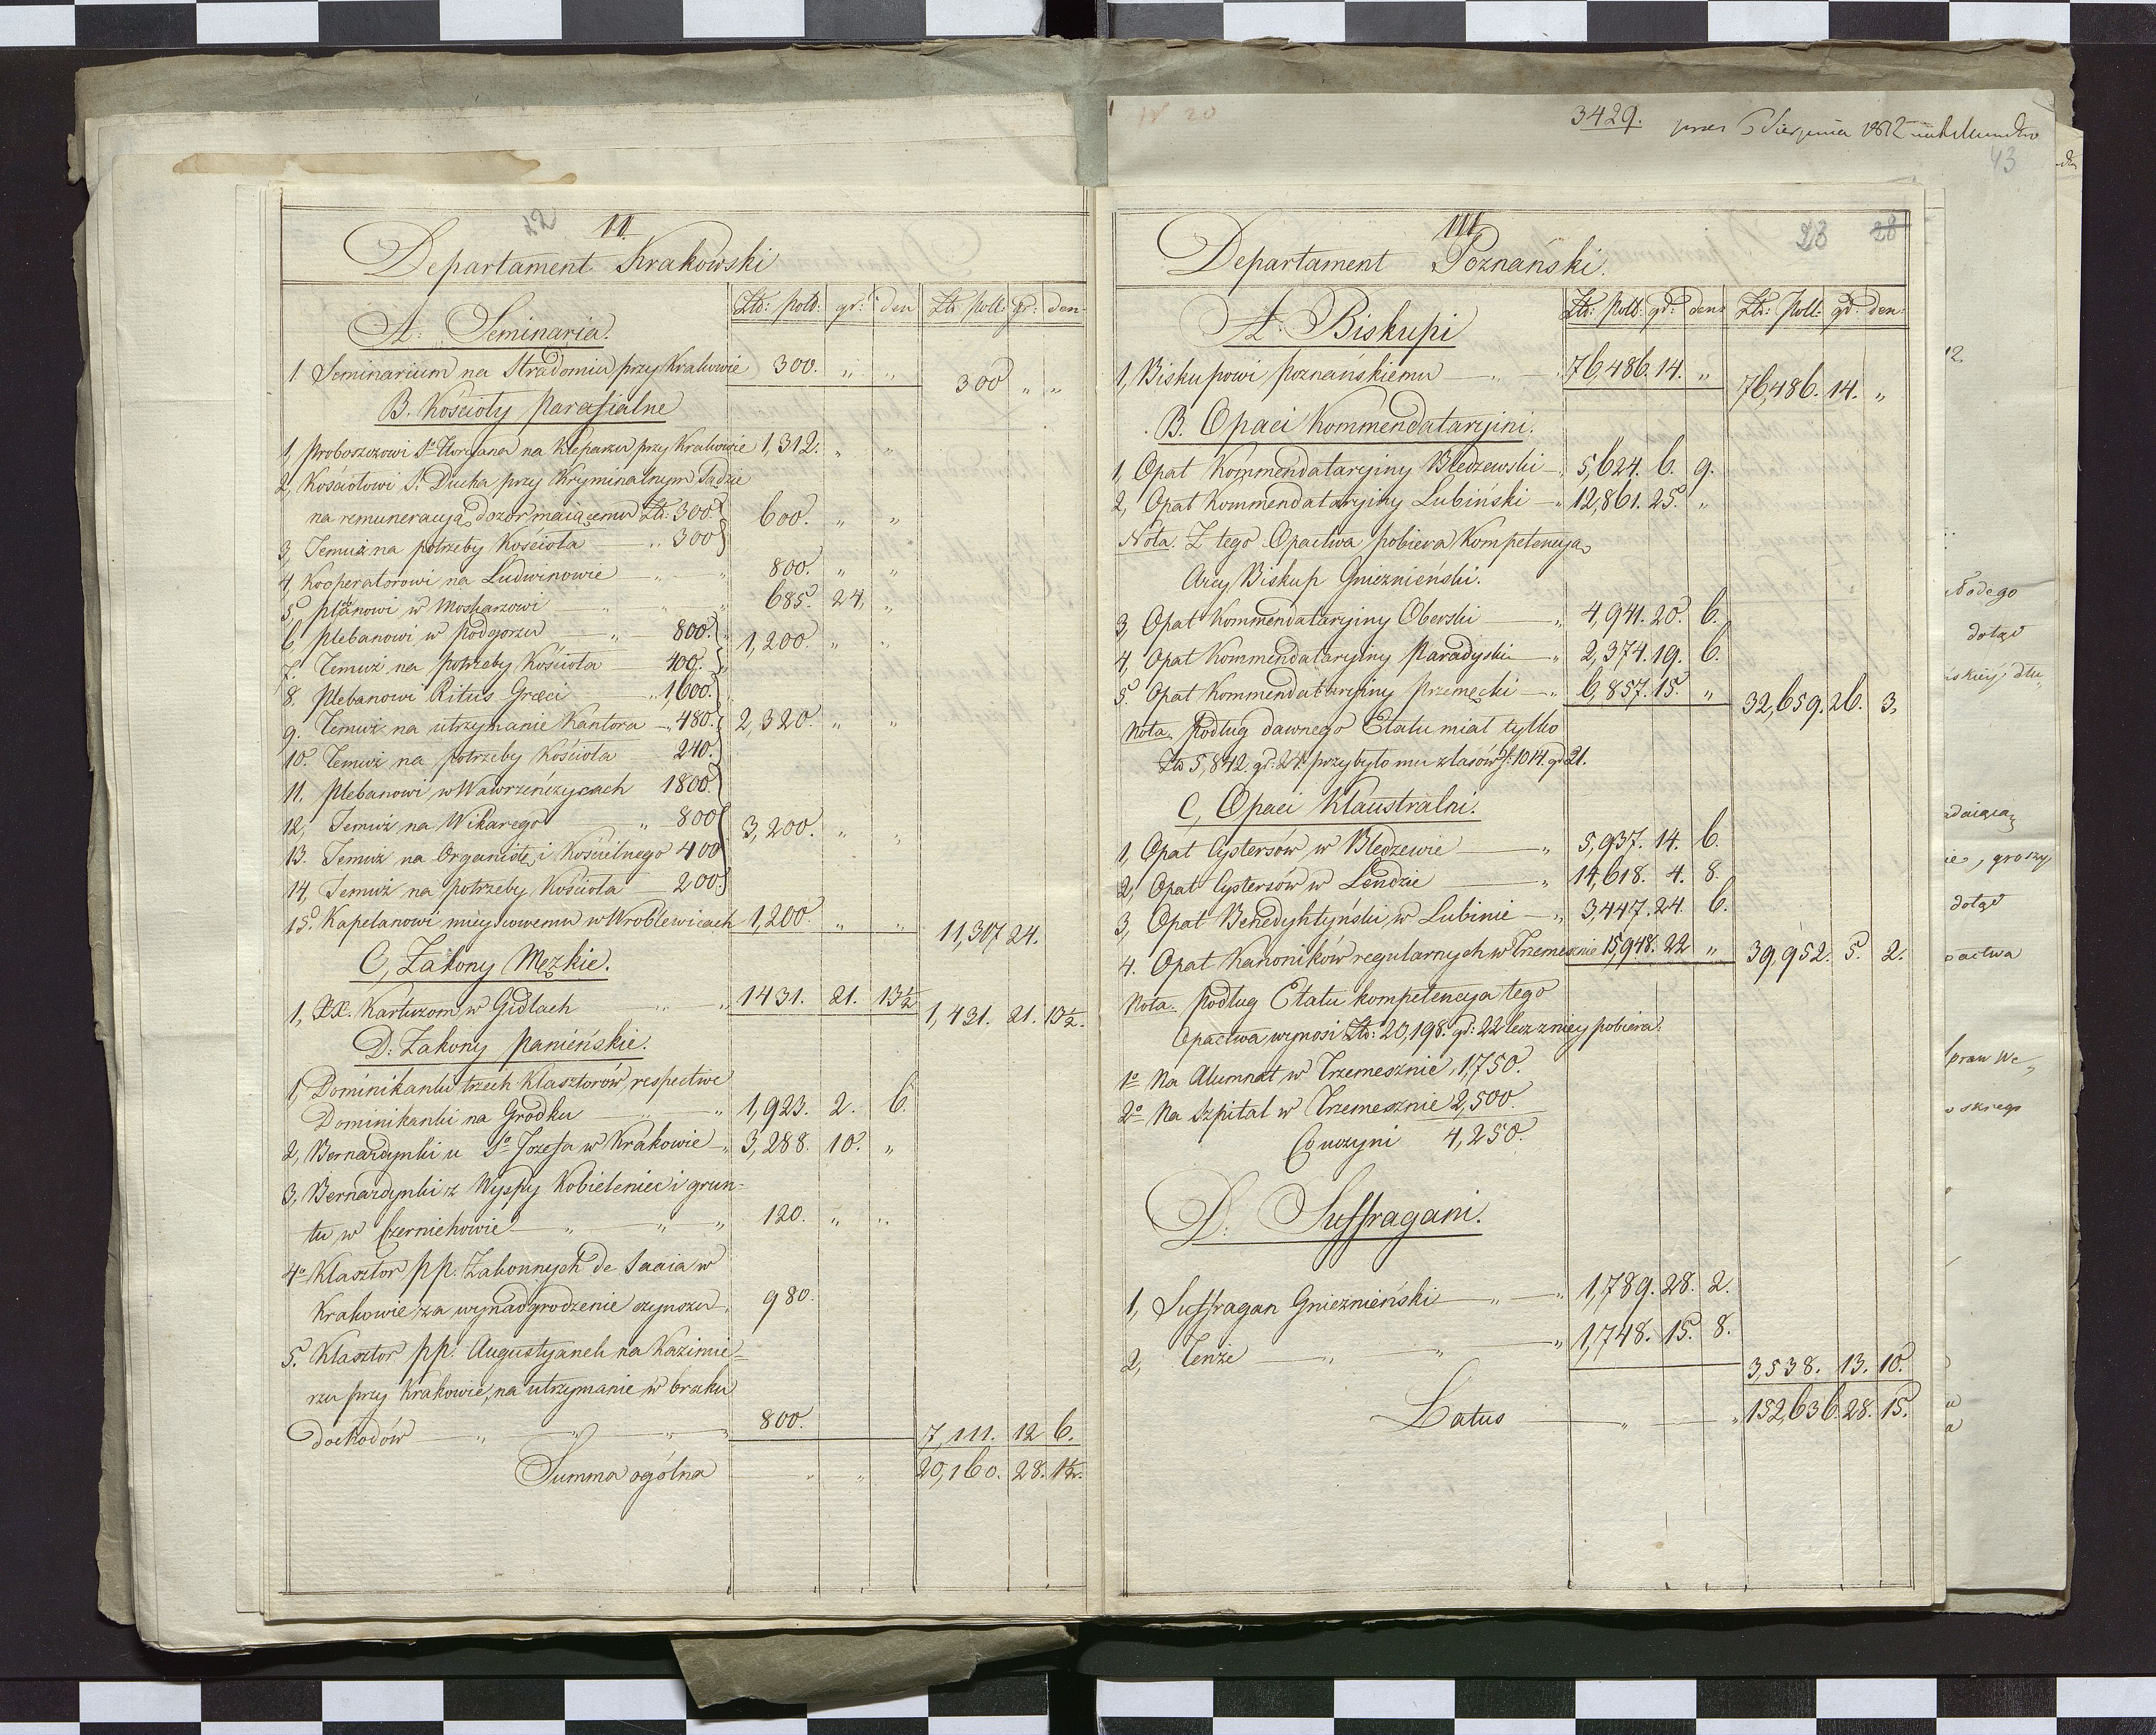 22
II.
Departament Krakowski
Złt: poll: gr: den Złt poll: gr: den
A. Seminaria.
1. Seminarium na Stradomiu przy Krakowie 300. „ „ 300 „ „
B. Kościoły Parafialne
1, Proboszczowi So Floryana na Kleparzu przy Krakowie 1,312. „ „
2, Kościołowi S. Ducha przy Kryminalnym Sądzie
na remuneracyją dozor maiącemu Zł: 300
3, Temuż na potrzeby Kościoła „ 300 600. „ „
4, Kooperatorowi na Ludwinowie „ „ 800. „ „
5, Plebanowi w 685. 24. „
6, Plebanowi w Podgorzu „ 800.
7. Temuż na potrzeby Kościoła 400. 1,200. „ „
8. Plebanowi Ritus Græci „ 1,600.
9. Temuż na utrzymanie Kantora „ 480. 2,320. „ „
10. Temuż na potrzeby Kościoła 240.
11. Plebanowi w Wawrzeńczycach 1800.
12, Temuż na Wikarego „ 800
13. Temuż na Organistę i Kościelnego 400 3,200. „ „
14, Temuż na potrzeby Kościoła 200.
15. Kapelanowi mieyscowemu w Wroblewicach 1,200. „ „ 11,317 24.
C, Zakony Męzkie.
1, XX. Kartuzom w Gidlach „ „ 1431. 21. 13½ 1,431. 21. 13½.
D: Zakony Panieńskie.
1, Dominikanki trzech Klasztorów, respective
Dominikanki na Grodku „ „ 1,923. 2. 6.
2, Bernardynki u So Jozefa w Krakowie „ 3,288. 10. „
3, Bernardynki z Wyspy Kobieleniec i grun=
tu w Czernichowie „ „ „ 120. „ „
4o Klasztor pp. Zakonnych de Saaia w
Krakowie za wynadgrodzenie czynszu 980.
5. Klasztor pp. Augustyanek na Kazimie=
rzu przy Krakowie, na utrzymanie w braku
dochodów „ „ „ „ 800. 7,111. 12 6.
Summa ogólna „ „ 20,160. 28. 1½.
No 20
3429.
43
III
23 28
Departament Poznański.
Złt: Poll: gr: den: Złt: Poll: gr: den:
A. Biskupi
1, Biskupowi poznańskiemu „ 76,486. 14. „ 76,486. 14. „
B. Opaci Kommendataryjni.
1, Opat Kommendataryjny Bledzewski „ 5,624. 6. 9.
2, Opat Kommendataryjny Lubiński „ 12,861. 25. „
Nota. Z tego Opactwa pobiera Kompetencyją
Arcy Biskup Gnieznieński.
3, Opat Kommendataryjny Oberski „ 4,941. 20. 6.
4, Opat Kommendataryjny Paradyski „ 2,374. 19. 6.
5. Opat Kommendataryjny Przemęcki „ 6,857. 15. „ 32,659. 26. 3,
Nota. Podług dawnego Etatu miał tylko
Złt 5,842. gr: 24. przybyło mu z lasów f. 1014. gr 21.
C, Opaci Klaustralni.
1, Opat Cystersów w Bledzewie „ 5,937. 14. 6.
2, Opat Cystersów w Lendzie „ 14,618. 4. 8.
3, Opat Benedyktyński w Lubiniu „ 3,447. 24. 6.
4. Opat Kanoników regularnych w Trzemesznie 15,948. 22 „ 39,952. 5. 2.
Nota. Podług Etatu kompetencyja tego
Opactwa wynosi Złt: 20,198. gr: 22 lecz z niey pobiera.
1o Na Alumnat w Trzemesznie, 1,750.
2o Na Szpital w Trzemesznie 2,500.
Co uczyni 4,250.
D. Suffragani.
1, Suffragan Gnieznieński „ „ 1,789. 28. 2.
2, Tenże „ „ „ 1,748. 15. 8. 3,538. 13. 10.
Latus „ „ 152,636. 28. 15.
dotąd
groszy
dotąd